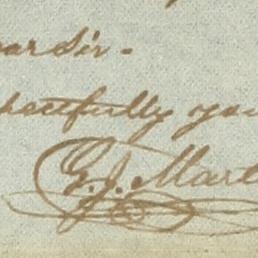 ear Sir -
pectfully you
G. J. Mart